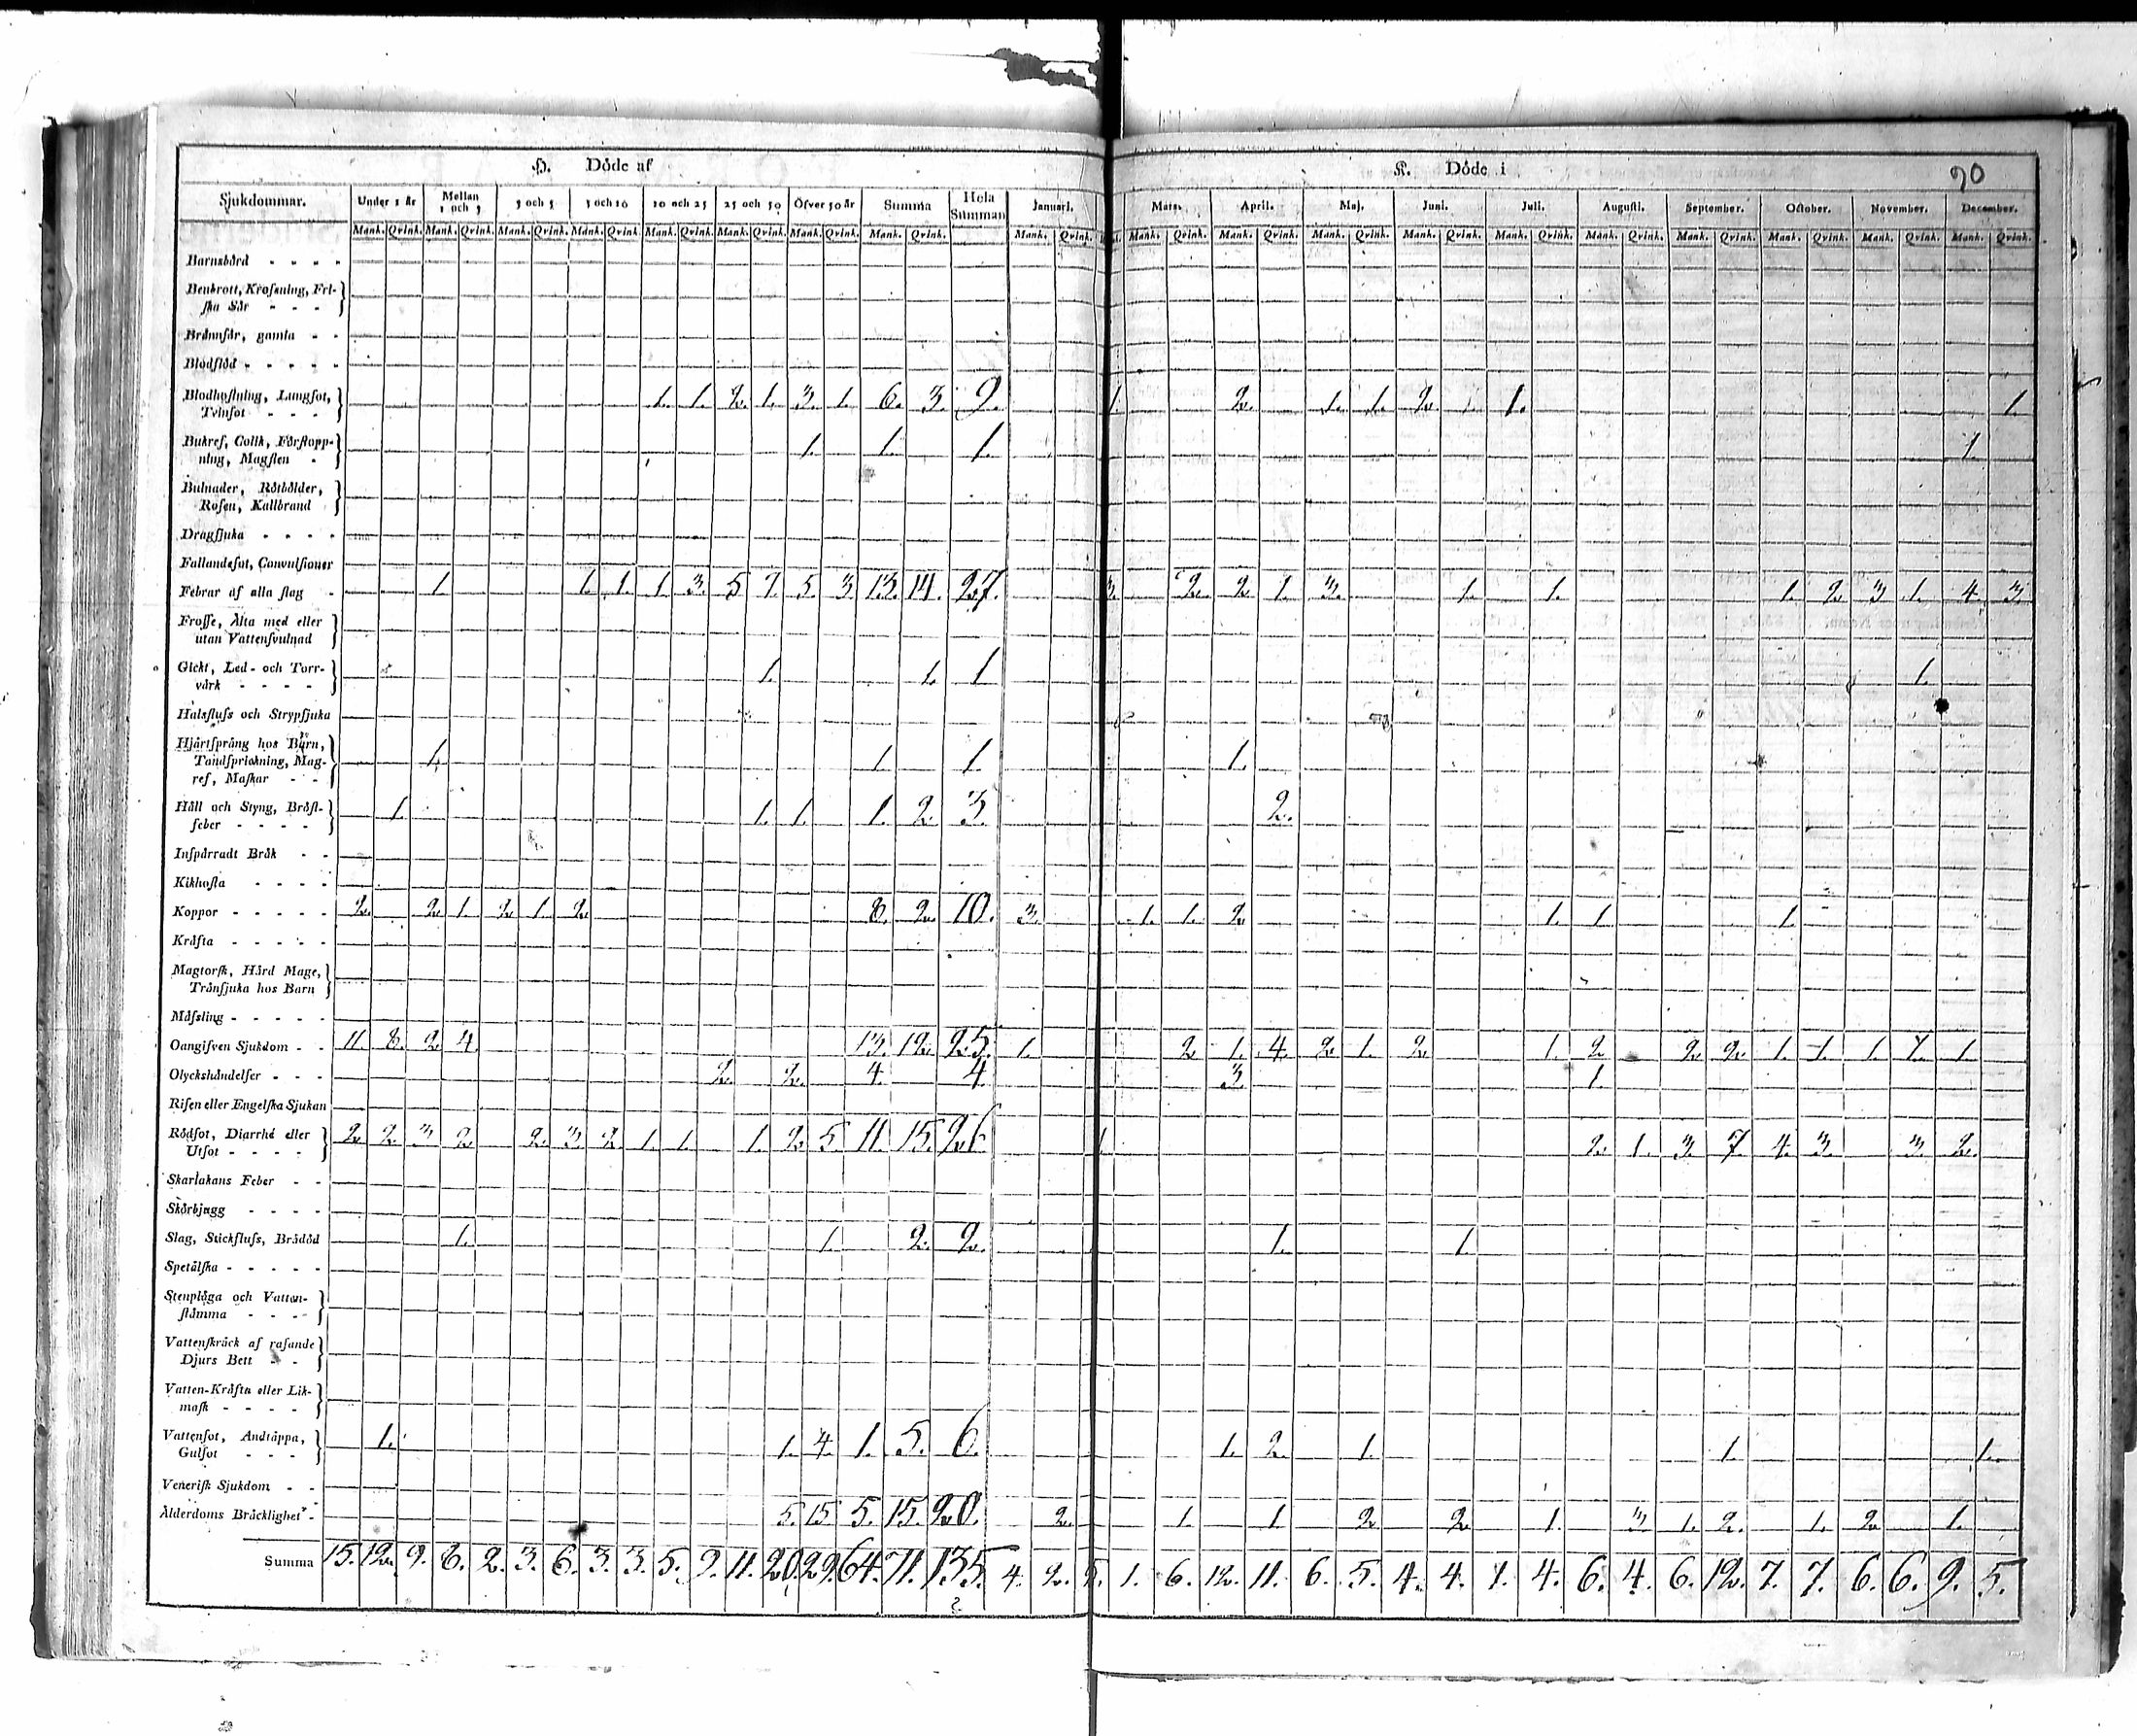 H. Döde af K. Döde i 90
Sjukdommar. Under 1 år Mellan 1 och 3 3 och 5 5 och 10 10 och 25 25 och 50 Öfver 50 år Summa Hela Summan Januari. Mars. April. Maj. Juni. Juli. Augusti. September. October. November. December.
Mank. Qvink. Mank. Qvink. Mank. Qvink. Mank. Qvink. Mank. Qvink. Mank. Qvink. Mank. Qvink. Mank. Qvink. Mank. Qvink. Mank. Qvink. Mank. Qvink. Mank. Qvink. Mank. Qvink. Mank. Qvink. Mank. Qvink. Mank. Qvink. Mank. Qvink. Mank. Qvink. Mank. Qvink.
Barnsbörd - - - -
Benbrott, Krossning, Fri-
ska Sår - - -
Brännsår, gamla - -
Blodflöd - - - - -
Blodhostning, Lungsot,
Tvinsot - - - 1. 1. 2. 1. 3. 1. 6. 3. 9. 1. 2. 1. 1. 2. 1. 1.
Bukref, Colik, Förstopp-
ning, Magsten - 1. 1. 1. 1.
Bulnader, Rötbölder,
Rosen, Kallbrand
Dragsjuka - - - -
Fallandesot, Convulsioner
Febrar af alla slag - 1. 1. 1. 1 3. 5 7. 5. 3. 13. 14. 27. 3. 2. 2. 1. 3. 1. 1. 1. 2. 3. 1. 4. 3.
Frosse, Älta med eller
utan Vattensvulnad
Gickt, Led- och Torr-
värk - - - - 1. 1. 1 1.
Halsfluss och Strypsjuka
Hjärtsprång hos Barn,
Tandsprickning, Mag-
ref, Maskar - - 1. 1. 1. 1.
Håll och Styng, Bröst-
feber - - - - 1. 1. 1. 1. 2. 3. 2.
Inspärradt Bråk - -
Kikhosta - - - -
Koppor - - - - - 2. 2. 1. 2. 1. 2. 8. 2. 10. 3. 1. 1. 2. 1. 1. 1.
Kräfta - - - - -
Magtorsk, Hård Mage,
Trånsjuka hos Barn
Mässling - - - - -
Oangifven Sjukdom - - 11. 8. 2. 4. 13. 12. 25. 1. 2 1. 4. 2. 1. 2. 1. 2. 2. 2. 1. 1. 1. 1. 1.
Olyckshändelser - - - 2. 2. 4. 4. 3. 1.
Risen eller Engelska Sjukan
Rödsot, Diarrhé eller
Utsot - - - - 2. 2. 3. 2. 2. 3. 2. 1. 1. 1. 2. 5. 11. 15. 26. 1. 2. 1. 3. 7. 4. 3. 3. 2.
Skarlakans Feber - -
Skörbjugg - - - -
Slag, Stickfluss, Brådöd 1. 1. 2. 2. 1. 1.
Spetälska - - - - -
Stenplåga och Vatten-
stämma - - - -
Vattenskräck af rasande
Djurs Bett - -
Vatten-Kräfta eller Lik-
mask - - - -
Vattensot, Andtäppa,
Gulsot - - - 1. 1. 4. 1. 5. 6. 1. 2. 1. 1. 1.
Venerisk Sjukdom - -
Ålderdoms Bräcklighet - 5. 15 5. 15. 20. 2. 1. 1. 2. 2. 1. 3. 1. 2. 1. 2. 1.
Summa 15. 12. 9. 8. 2. 3. 6. 3. 3. 5. 9. 11. 20. 29. 64. 71. 135. 4. 2. 5. 1. 6. 12. 11. 6. 5. 4. 4. 1. 4. 6. 4. 6. 12. 7. 7. 6. 6. 9. 5.